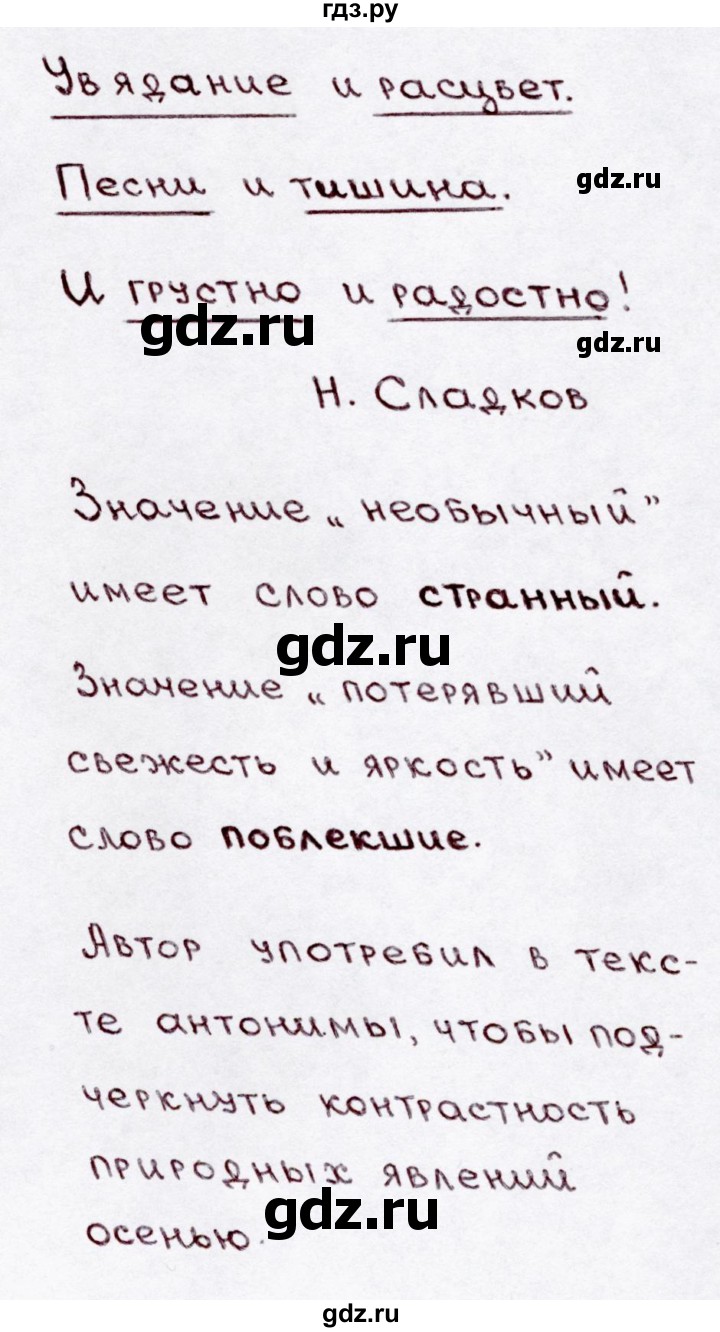 гдз.ру
Увядание и расцвет.
Песни и тишина.
gdz.ru
И грустно и радостно!
gdz.ru
gdz.ru
Н. Сладков
Значение „необычный”
имеет слово странный.
gdz.ru
Значение „потерявший
свежесть и яркость” имеет
слово поблекшие.
Автор употребил в текс-
те антонимы, чтобы под-
черкнуть контрастность
природных явлений
gdz.ru
осенью.
gdz.ru